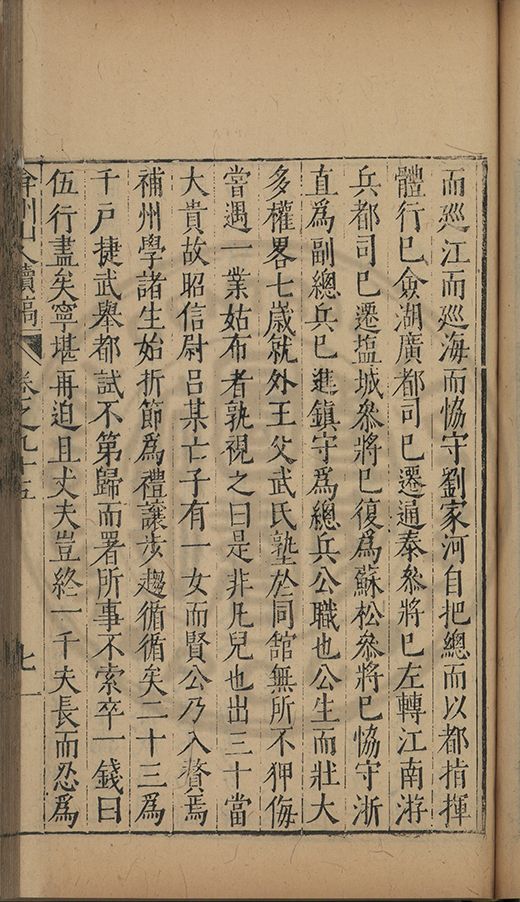 而廵江而廵海而恊守劉家河自把總而以都指揮
體行已僉湖廣都司已遷通泰叅將已左轉江南游
兵都司已遷塩城叅將已復爲蘇松叅將已恊守浙
直爲副總兵已進鎮守爲總兵公職也公生而壯大
多權畧七歲就外王父武氏塾於同舘無所不狎侮
嘗遇一業姑布者孰視之曰是非凡兒也出三十當
大貴故昭信尉呂某亡子有一女而賢公乃入贅焉
補州學諸生始折節爲禮讓步趨循循矣二十三爲
千戸捷武舉都試不第歸而署所事不索卒一錢曰
伍行盡矣寧堪再迫且丈夫豈終一千夫長而忍爲
弇州山人續稿 卷之九十五 七